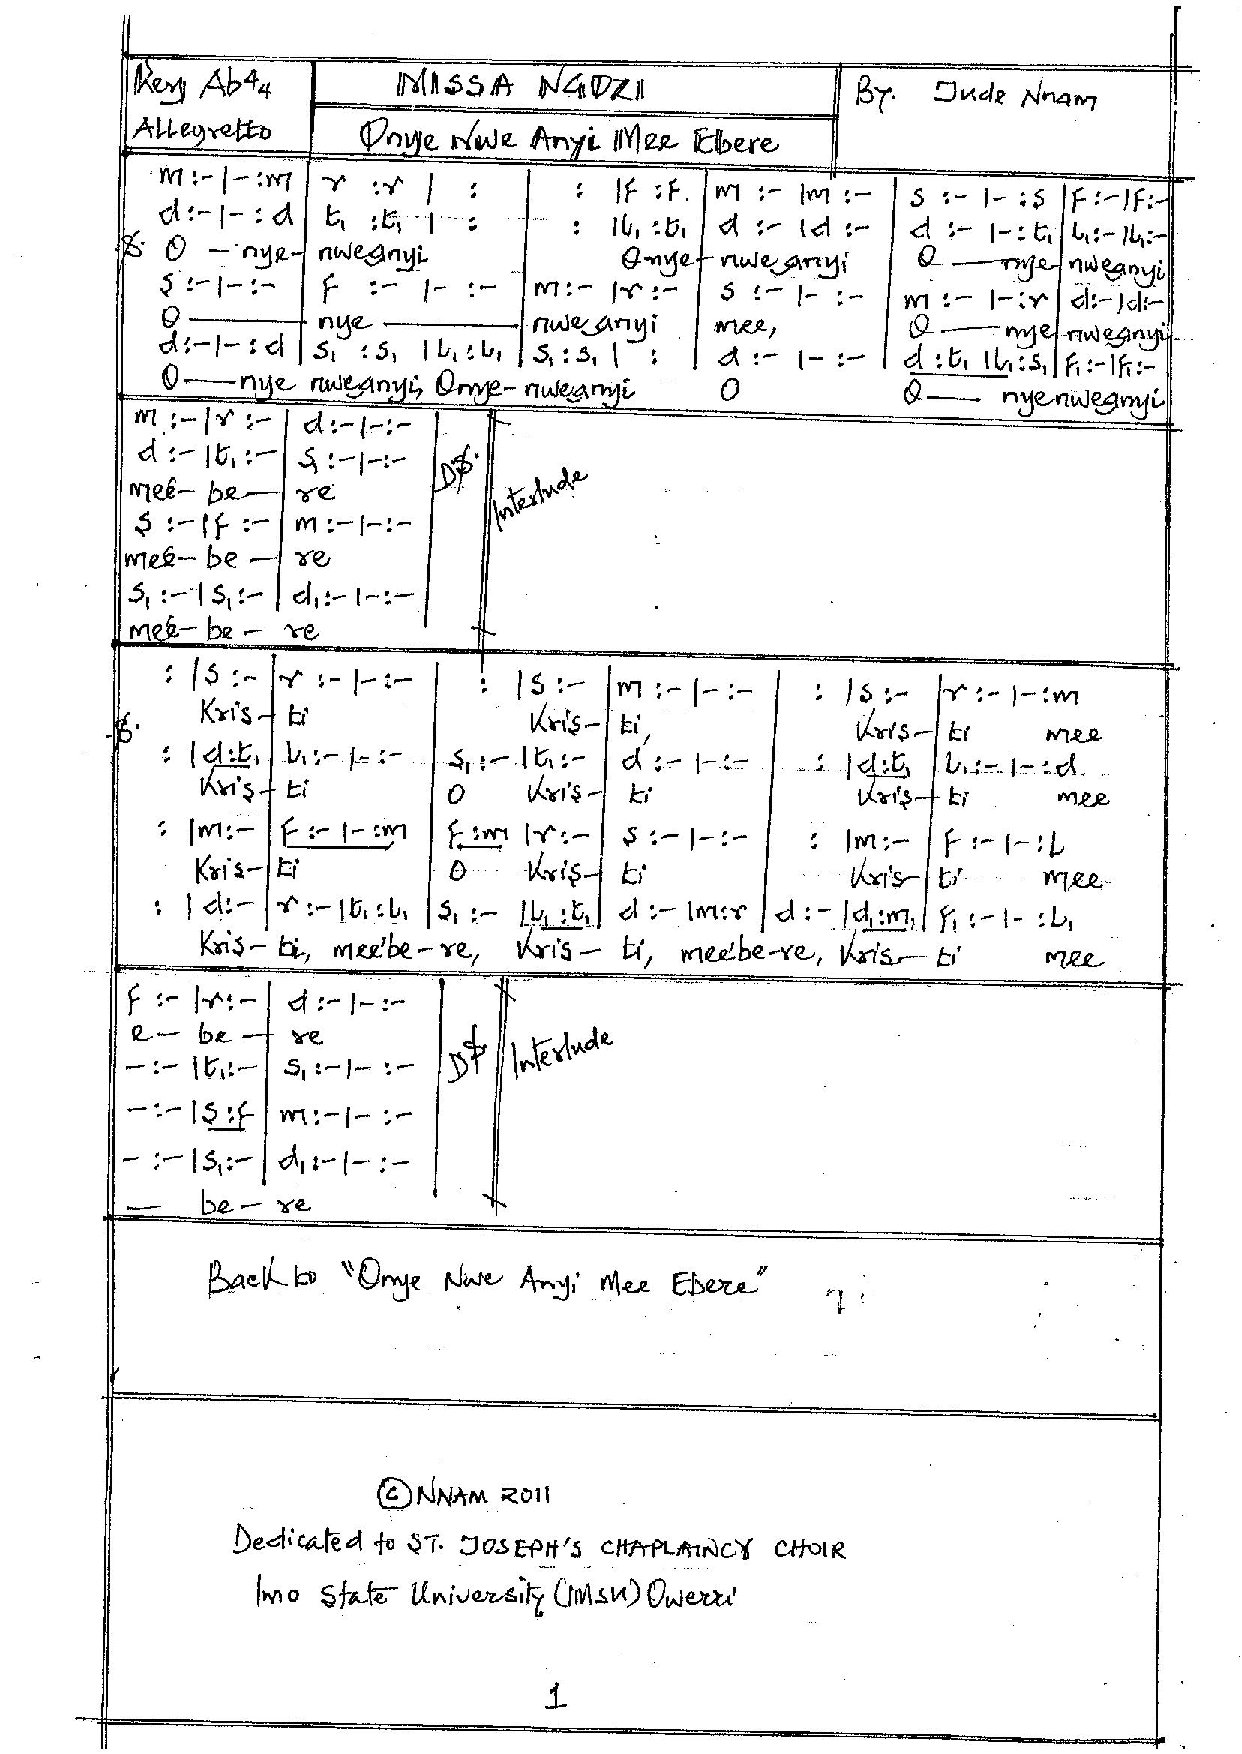 Key Ab 4/4
Allegretto
MISSA NGOZI
Onye Nwe Anyi Mee Ebere
By. Jude Nnam
m :- | - :m | r :r | : | : | f :f. | m :- | m :- | s :- | - :s | f :- | f :-
d :- | - :d | t₁ :t₁ | - : | : | l₁ :t₁ | d :- | d :- | d :- | - :t₁ | l₁ :- | l₁ :-
O — nye- nweanyi Onye- nweanyi O — nye nweanyi
s :- | - :- | f :- | - :- | m :- | r :- | s :- | - :- | m :- | - :r | d :- | d :-
O — nye — nweanyi mee, O — nye nweanyi
d :- | - :d | s₁ :s₁ | l₁ :l₁ | s₁ :s₁ | : | d :- | - :- | d :t₁ | l₁ :s₁ | f₁ :- | f₁ :-
O — nye nweanyi, Onye- nweanyi O O — nyenweanyi
m :- | r :- | d :- | - :-
d :- | t₁ :- | s₁ :- | - :-
mee- be- re
s :- | f :- | m :- | - :-
mee- be- re
s₁ :- | s₁ :- | d₁ :- | - :-
mee- be- re
D.S.
Interlude
: | s :- | r :- | - :- | : | s :- | m :- | - :- | : | s :- | r :- | - :m
Kris- ti Kris- ti, Kris- ti mee
: | d :t₁ | l₁ :- | - :- | s₁ :- | t₁ :- | d :- | - :- | : | d :t₁ | l₁ :- | - :d
Kris- ti O Kris- ti Kris- ti mee
: | m :- | f :- | - :m | f :m | r :- | s :- | - :- | : | m :- | f :- | - :l
Kris- ti O Kris- ti Kris- ti mee
: | d :- | r :- | t₁ :l₁ | s₁ :- | l₁ :t₁ | d :- | m :r | d :- | d₁ :m₁ | f₁ :- | - :l₁
Kris- ti, mee'be-re, Kris- ti, mee'be-re, Kris- ti mee
f :- | r :- | d :- | - :-
e- be- re
- :- | t₁ :- | s₁ :- | - :-
- :- | s :f | m :- | - :-
- :- | s₁ :- | d₁ :- | - :-
— be- re
D.S.
Interlude
Back to "Onye Nwe Anyi Mee Ebere"
© NNAM 2011
Dedicated to ST. JOSEPH'S CHAPLAINCY CHOIR
Imo State University (IMSU) Owerri
1